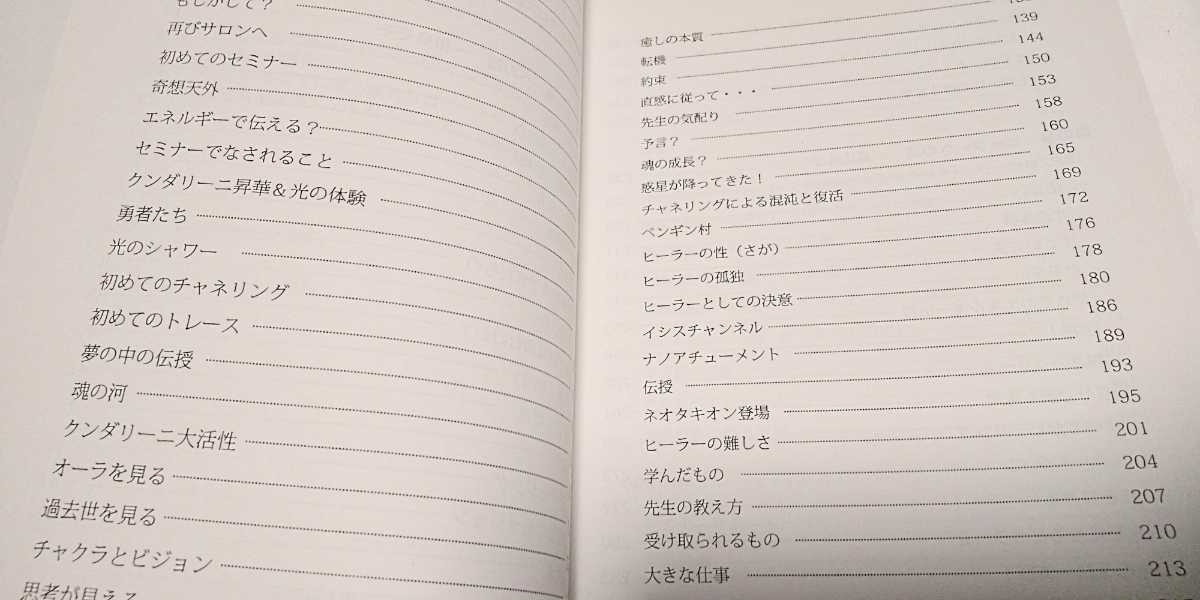 もしかして？
再びサロンへ
初めてのセミナー
奇想天外
エネルギーで伝える？
セミナーでなされること
クンダリーニ昇華＆光の体験
勇者たち
光のシャワー
初めてのチャネリング
初めてのトレース
夢の中の伝授
魂の河
クンダリーニ大活性
オーラを見る
過去世を見る
チャクラとビジョン
思考が見える
癒しの本質
転機 139
約束 144
直感に従って・・・ 150
先生の気配り 153
予言？ 158
魂の成長？ 160
惑星が降ってきた！ 165
チャネリングによる混沌と復活 169
ペンギン村 172
ヒーラーの性（さが） 176
ヒーラーの孤独 178
ヒーラーとしての決意 180
イシスチャンネル 186
ナノアチューメント 189
伝授 193
ネオタキオン登場 195
ヒーラーの難しさ 201
学んだもの 204
先生の教え方 207
受け取られるもの 210
大きな仕事 213